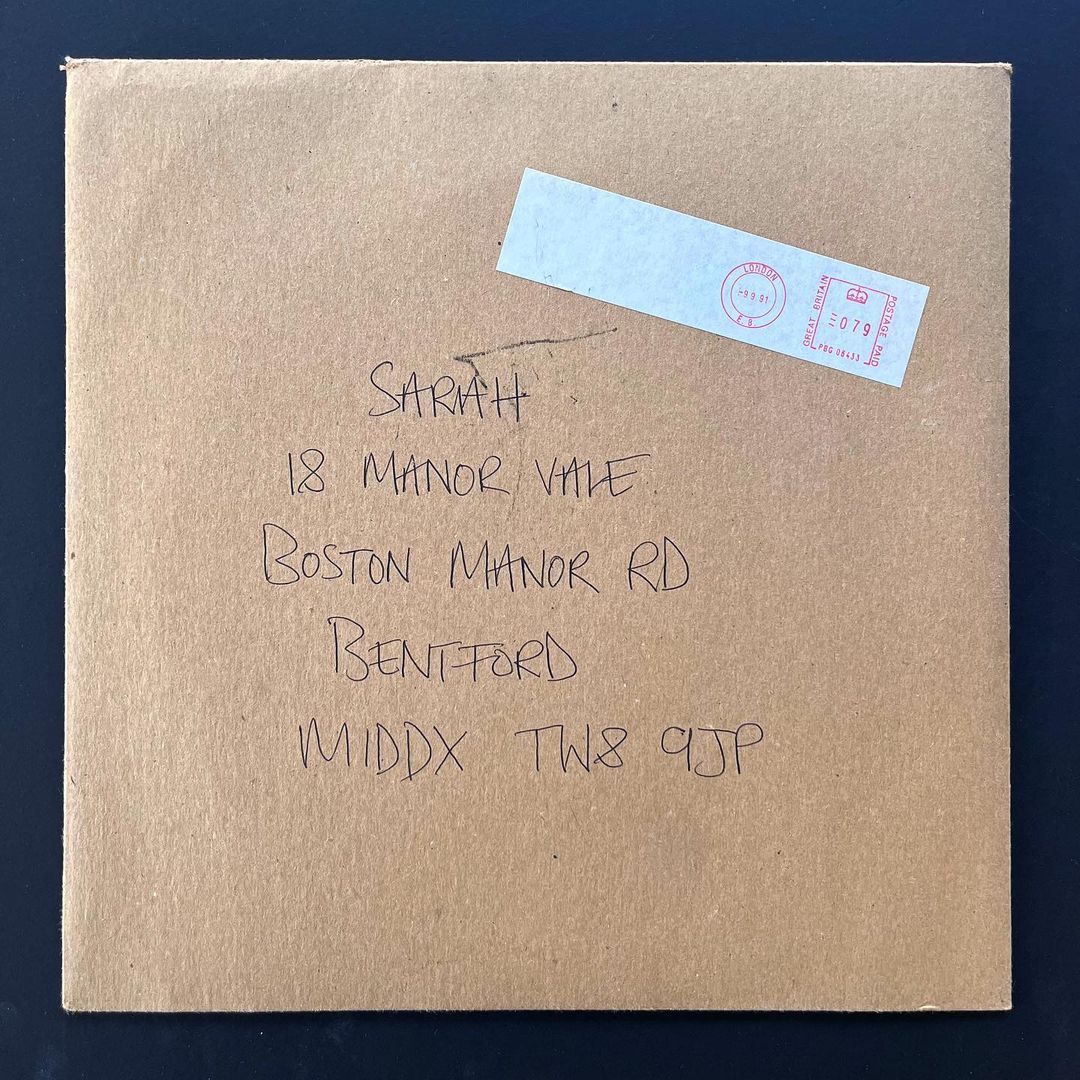 LONDON
-9.9.91
E.8.
GREAT BRITAIN
079
PBG 08433
POSTAGE PAID
SARAH
18 MANOR VALE
BOSTON MANOR RD
BENTFORD
MIDDX TW8 9JP